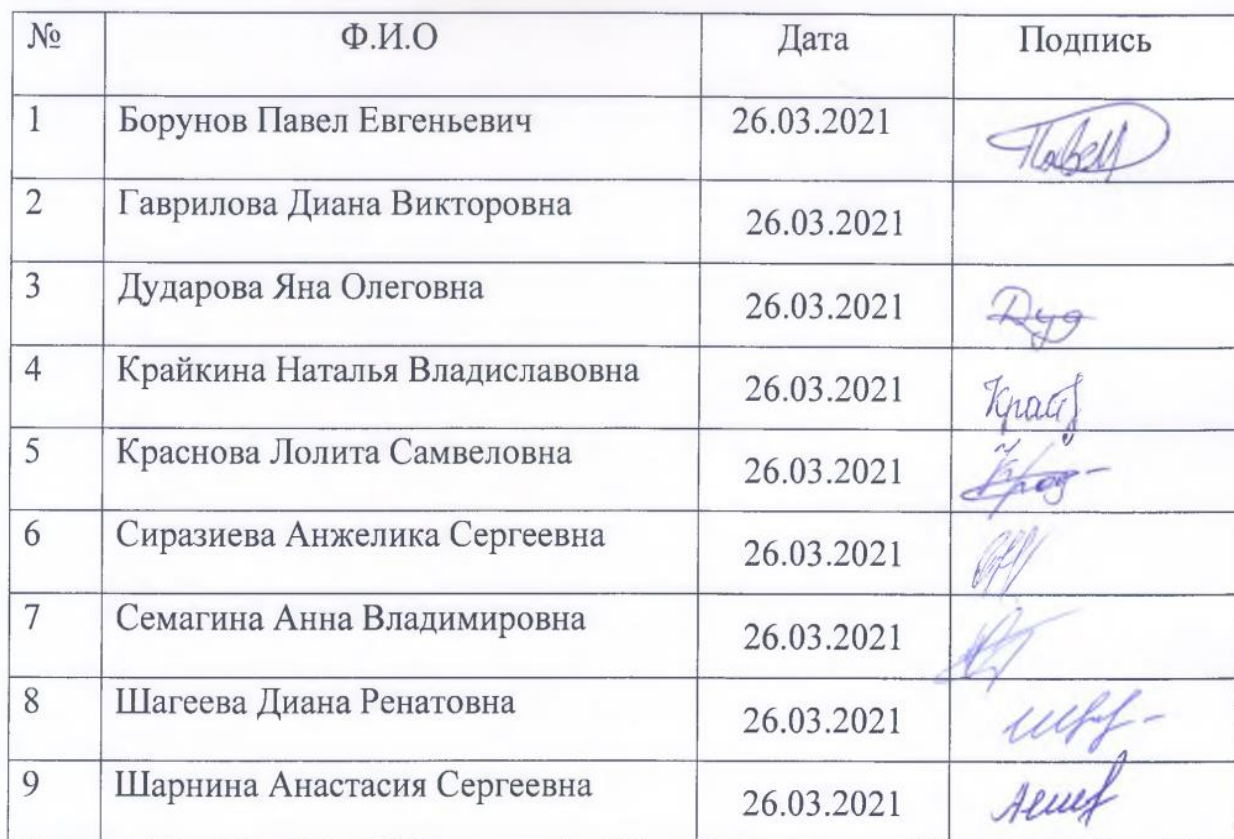 № Ф.И.О Дата Подпись
1 Борунов Павел Евгеньевич 26.03.2021 Павел
2 Гаврилова Диана Викторовна 26.03.2021
3 Дударова Яна Олеговна 26.03.2021 Дуд
4 Крайкина Наталья Владиславовна 26.03.2021 Край
5 Краснова Лолита Самвеловна 26.03.2021
6 Сиразиева Анжелика Сергеевна 26.03.2021
7 Семагина Анна Владимировна 26.03.2021
8 Шагеева Диана Ренатовна 26.03.2021
9 Шарнина Анастасия Сергеевна 26.03.2021